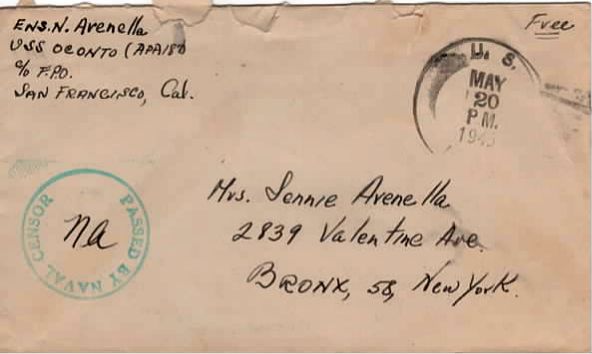 Ens. N. Avenella
USS OCONTO (APA187)
c/o F.P.O.
San Francisco, Cal.
Free
U. S.
MAY
20
P M.
PASSED BY NAVAL CENSOR
na
Mrs. Jennie Avenella
2839 Valentine Ave.
Bronx, 58, New York.